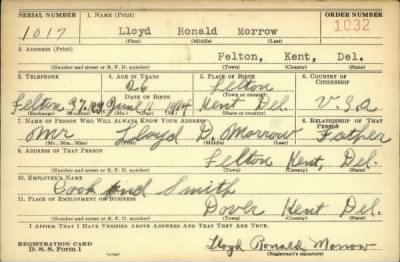 SERIAL NUMBER 1. NAME (Print) ORDER NUMBER
1017 Lloyd Ronald Morrow 1032
(First) (Middle) (Last)
2. ADDRESS (Print)
Felton, Kent, Del.
(Number and street or R. F. D. number) (Town) (County) (State)
3. TELEPHONE 4. AGE IN YEARS 5. PLACE OF BIRTH 6. COUNTRY OF CITIZENSHIP
26 Felton
DATE OF BIRTH (Town or county)
Felton June 11 1914 Kent Del. U.S.A
(Exchange) (Number) (Mo.) (Day) (Yr.) (State or country)
7. NAME OF PERSON WHO WILL ALWAYS KNOW YOUR ADDRESS 8. RELATIONSHIP OF THAT PERSON
Mr Lloyd D. Morrow Father
(Mr., Mrs., Miss) (First) (Middle) (Last)
9. ADDRESS OF THAT PERSON
Felton Kent, Del.
(Number and street or R. F. D. number) (Town) (County) (State)
10. EMPLOYER'S NAME
Cook and Smith
11. PLACE OF EMPLOYMENT OR BUSINESS
Dover Kent Del.
(Number and street or R. F. D. number) (Town) (County) (State)
I AFFIRM THAT I HAVE VERIFIED ABOVE ANSWERS AND THAT THEY ARE TRUE.
REGISTRATION CARD
D. S. S. Form 1 Lloyd Ronald Morrow
(over) (Registrant's signature)